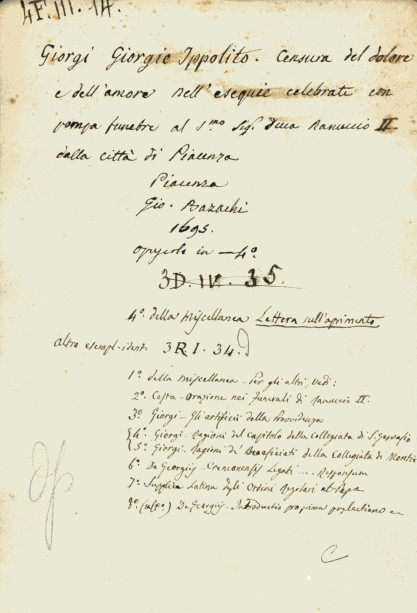 4F. III. 14.
Giorgi Giorgio Ippolito. Censura del dolore
e dell'amore nell'esequie celebrate con
pompa funebre al S.mo Sig. Duca Ranuccio II
dalla città di Piacenza
Piacenza
Gio. Bazachi
1695.
opuscolo in -4º.
3D. IV. 35.
4º. della Miscellanea Lettera sull'aprimento
altro esempl. ident. 3R. I. 34.
1º. della Miscellanea - Per gli altri, vedi:
2º. Costa - Orazione nei funerali di Ranuccio II.
3º Giorgi - Gli artifizi della Provvidenza
4º. Giorgi - Ragioni del capitolo della Collegiata di S. Gervasio
5º. Giorgi. Ragioni de' Beneficiati della Collegiata di
6º. De Georgiis - Legati ... Responsum
7º. Supplica Latina degli Ordini Regolari al Papa
8º. De Georgiis - Introductio
C